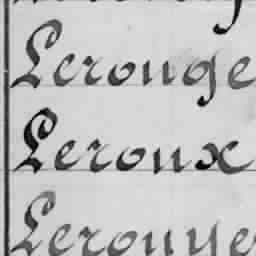 Lerouge
Leroux
Lerouye